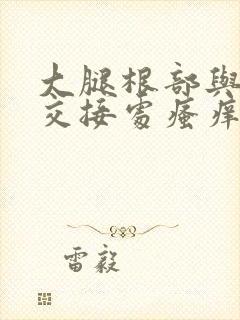 大腿根部與
交接處瘙痒
雷毅